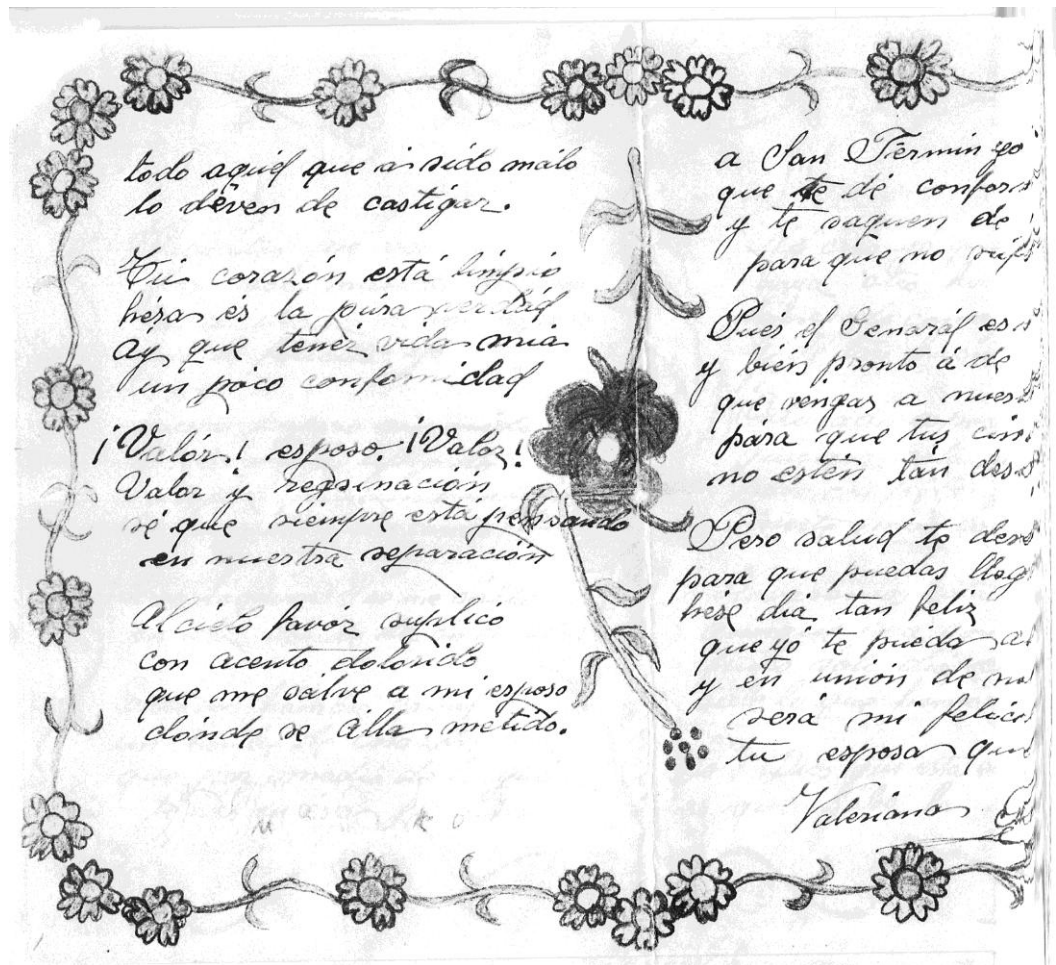 todo aquél que á sido málo
lo déven de castigar.
Tú corazón está limpio
hésa és la púra verdád
áy que tenér vida mia
un póco confomidad
¡Valór! esposo. ¡Valor!
Valor y resinación
sé que siempre está pensando
en nuestra separación
Al cielo favor suplico
con acento dolorido
que me salve a mi esposo
dónde se álla metido.
a San Fermin yo
que te dé confor
y te saquen de
para que no
Pués el Generál es
y bién pronto á de
que vengas a nues
pára que tús
no estén tán des
Pero salud te
para que puedas lleg
hése dia tan feliz
que yó te puéda
y en unión de
será mi felici
tu esposa que
Valeriana